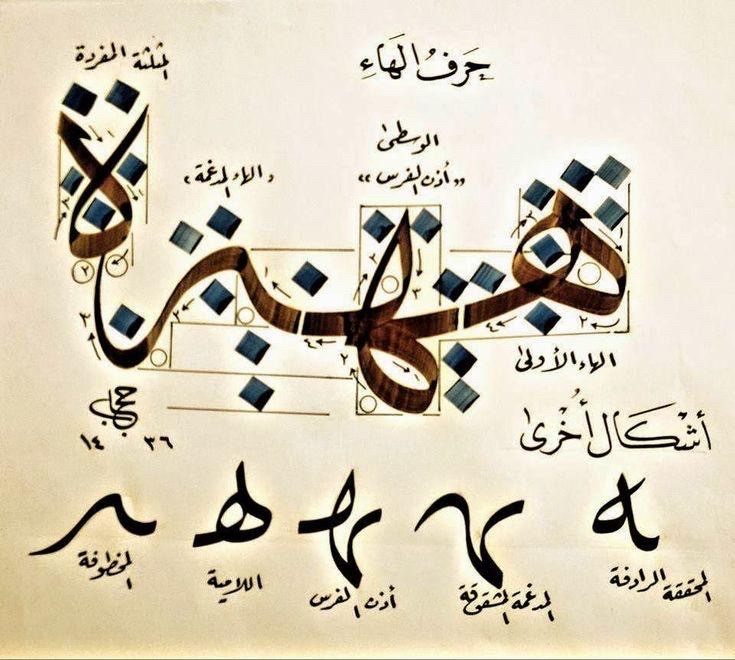 حَرفُ الهَاءِ
المثلثة المفردة
الوسطى
«أذن الفرس»
«الهاء المدغمة»
١
٢
٣
٤
الهاء الأولى
حجاب
١٤٣٦
أشكال أُخرى
المحققة الرادفة
المدغمة المشقوقة
أذن الفرس
اللامية
المخطوفة